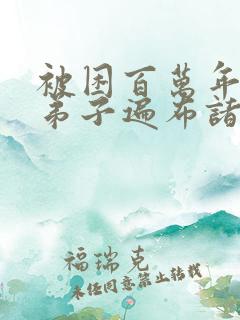 被困百萬年
弟子遍布諸
福瑞克
未經同意禁止轉載